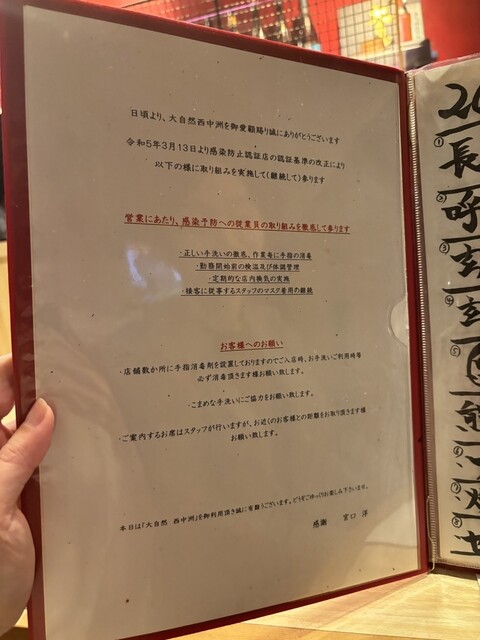 日頃より、大自然西中洲を御愛顧賜り誠にありがとうございます
令和5年3月13日より感染防止認証店の認証基準の改正により
以下の様に取り組みを実施して(継続して)参ります
営業にあたり、感染予防への従業員の取り組みを徹底して参ります
・正しい手洗いの徹底、作業毎に手指の消毒
・勤務開始前の検温及び体調管理
・定期的な店内換気の実施
・接客に従事するスタッフのマスク着用の継続
お客様へのお願い
・店舗数か所に手指消毒剤を設置しておりますのでご入店時、お手洗いご利用時等
必ず消毒頂きます様お願い致します。
・こまめな手洗いにご協力をお願い致します。
・ご案内するお席はスタッフが行いますが、お近くのお客様との距離をお取り頂きます様
お願い致します。
本日は「大自然 西中洲」を御利用頂き誠に有難うございます。どうぞごゆっくりお楽しみ下さいませ。
感謝 宮口 洋
20
① 長
② 呼
③ 玄
④ 玄
⑤